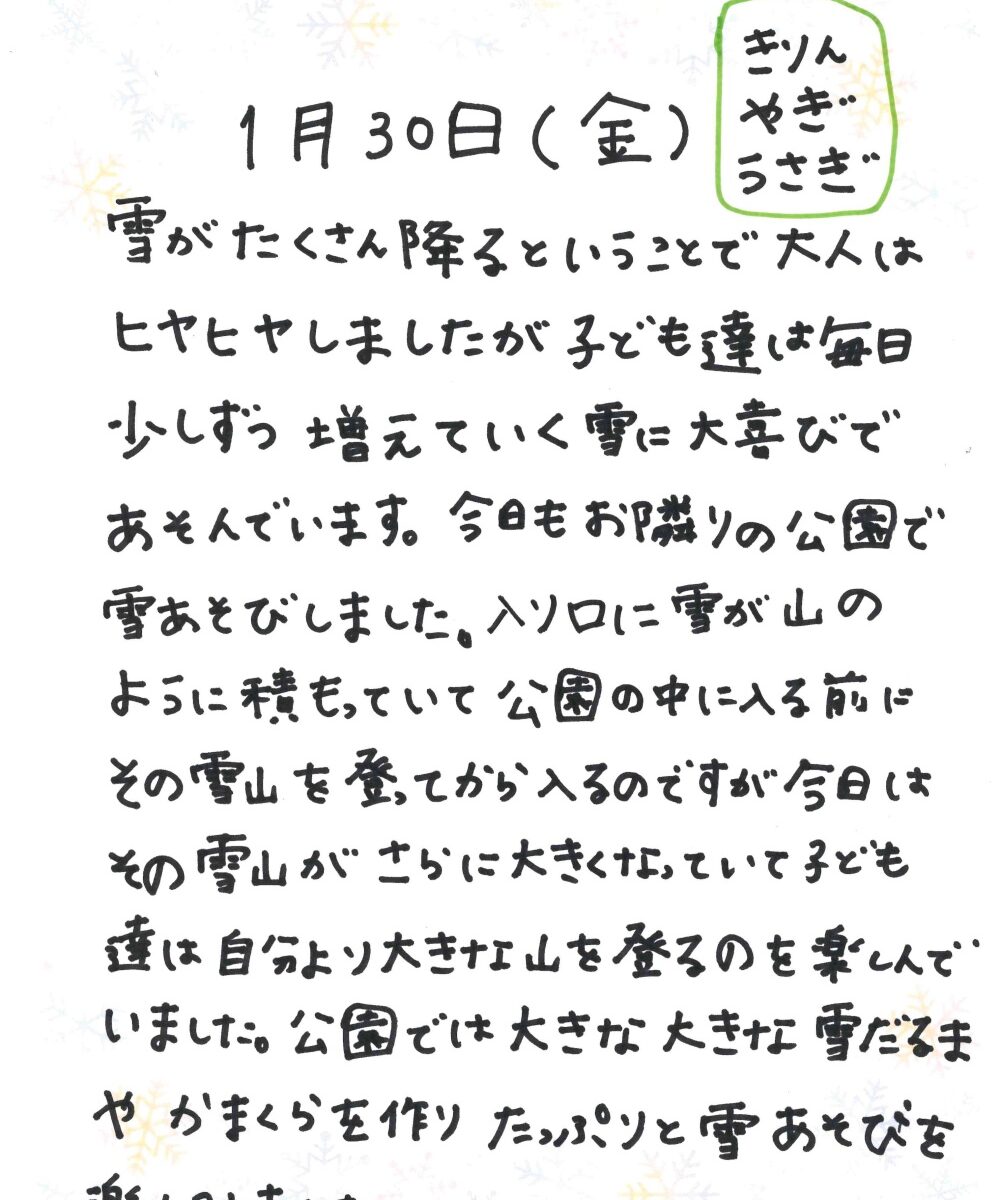 きりん
やぎ
うさぎ
1月30日(金)
雪がたくさん降るということで大人は
ヒヤヒヤしましたが子ども達は毎日
少しずつ増えていく雪に大喜びで
あそんでいます。今日もお隣りの公園で
雪あそびしました。入り口に雪が山の
ように積もっていて公園の中に入る前に
その雪山を登ってから入るのですが今日は
その雪山がさらに大きくなっていて子ども
達は自分より大きな山を登るのを楽しんで
いました。公園では大きな大きな雪だるま
やかまくらを作りたっぷりと雪あそびを